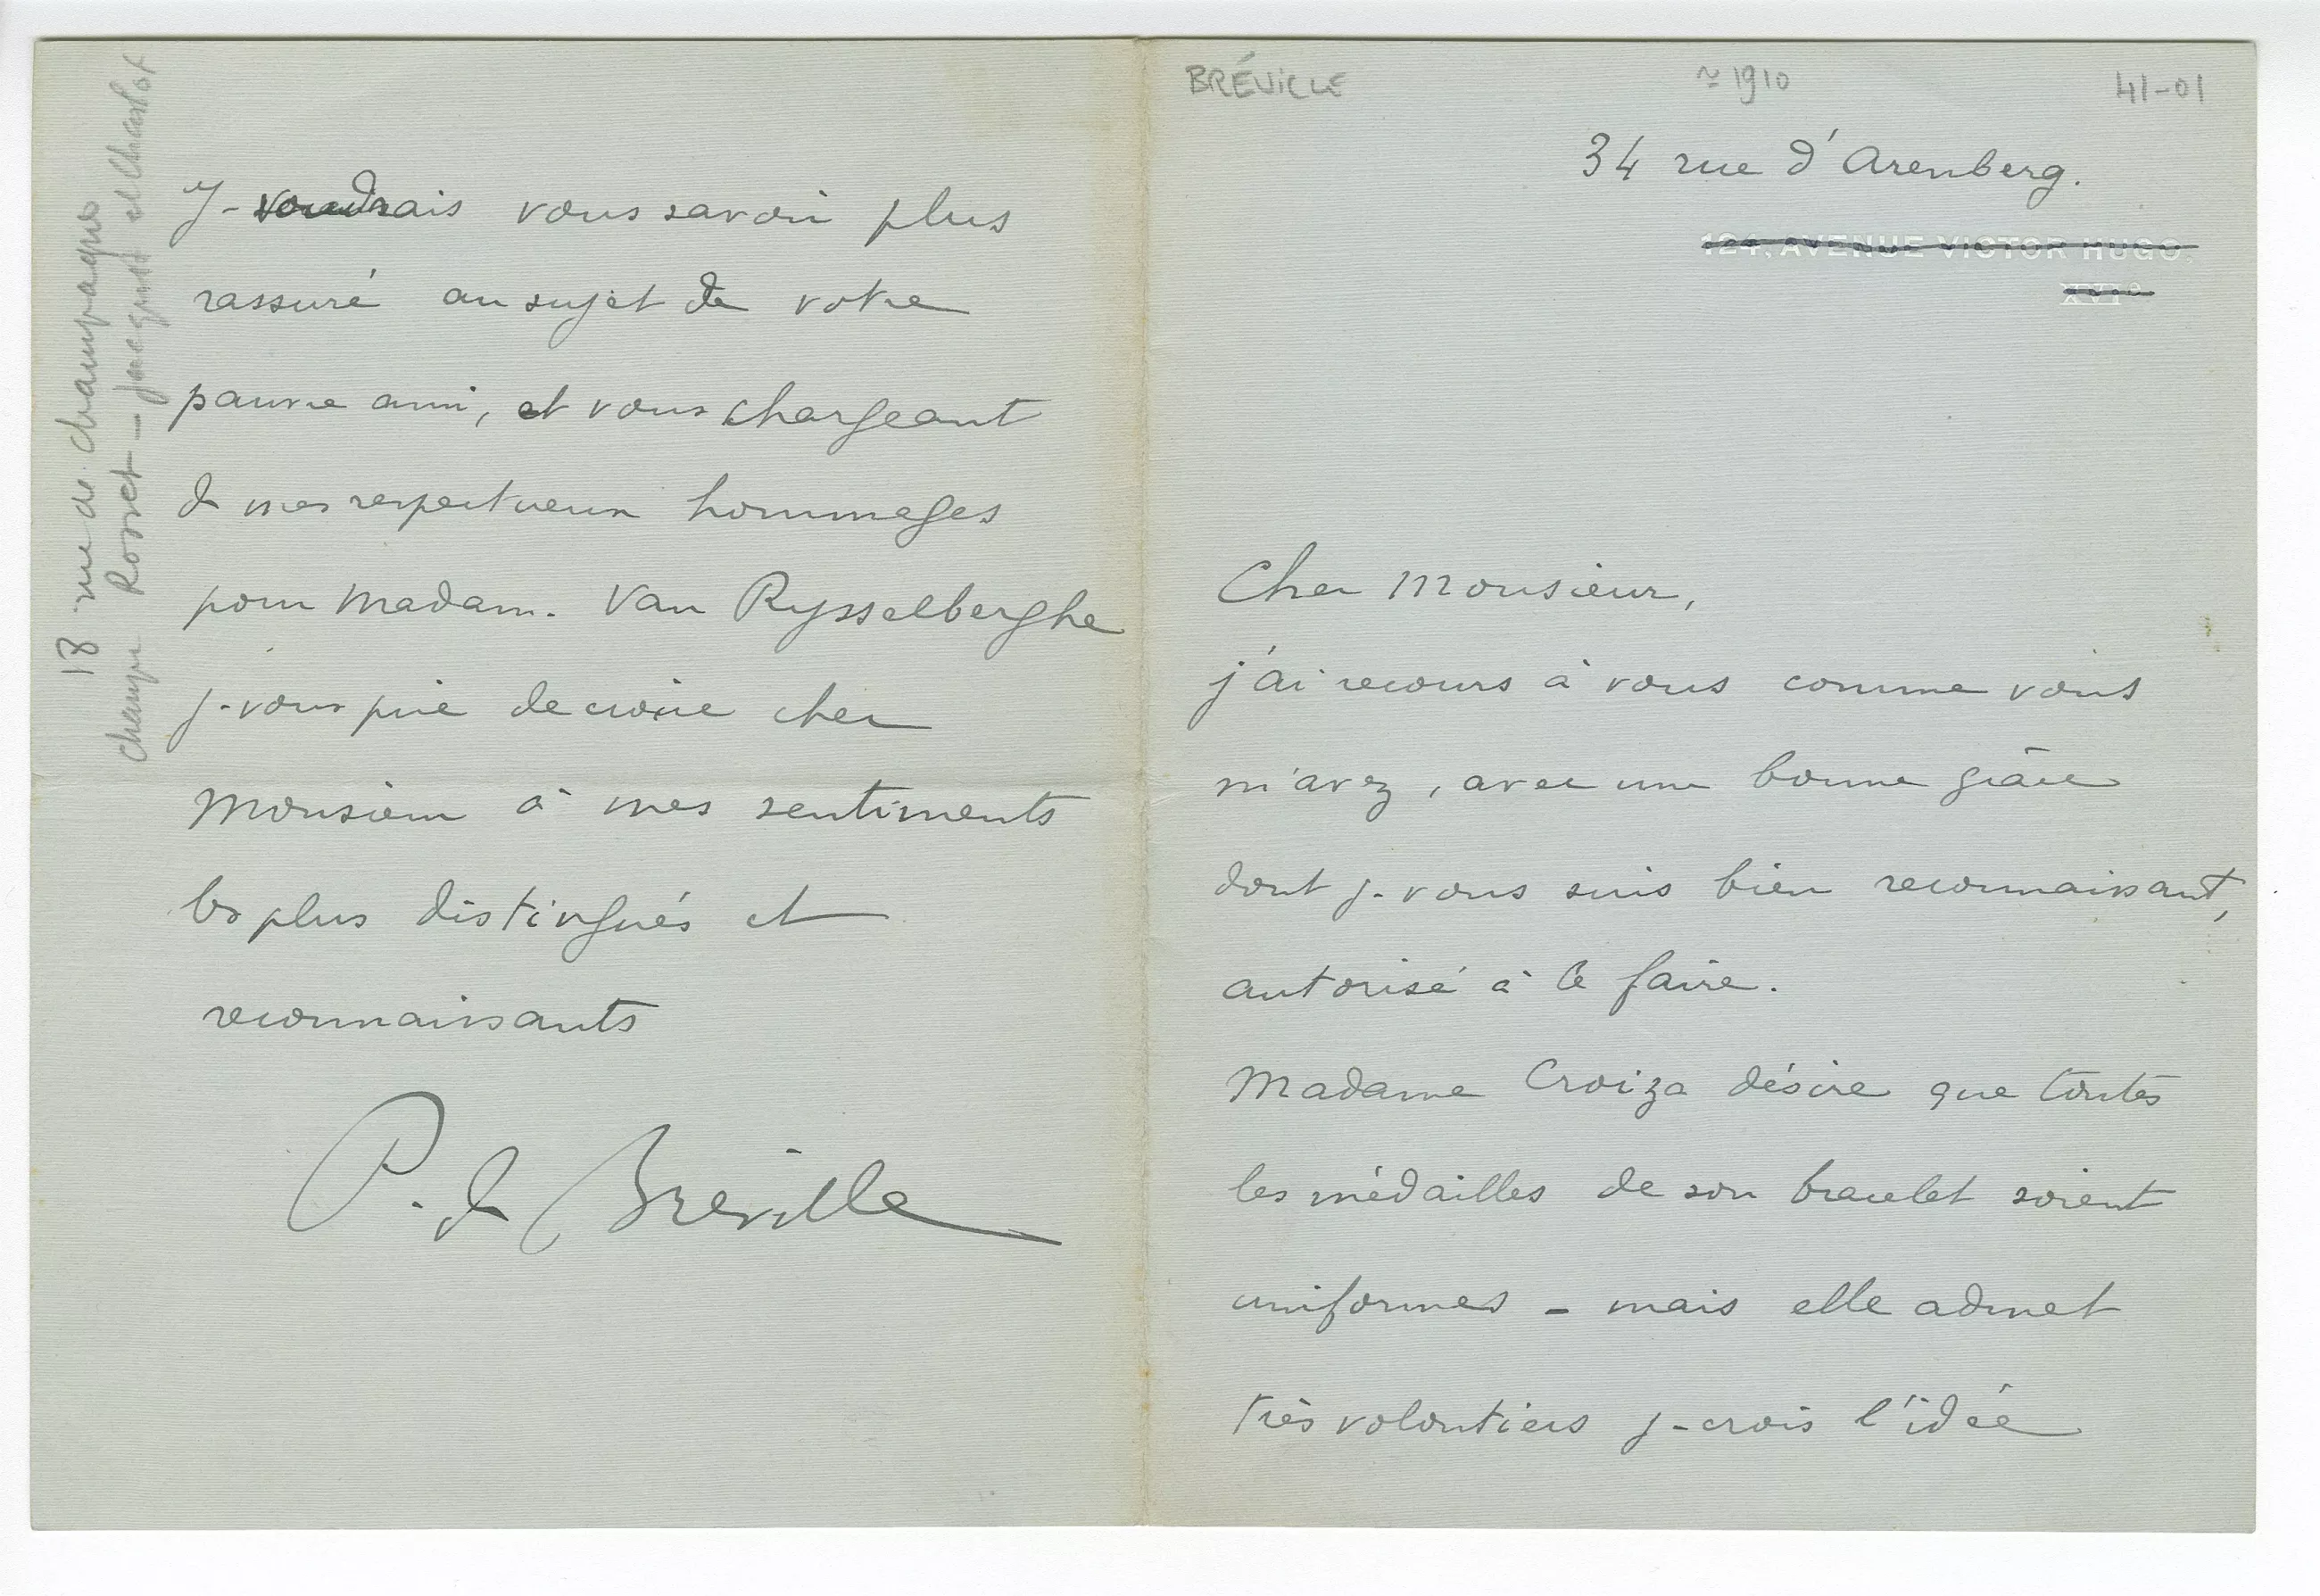 BRÉVILLE ≈ 1910 41-01
34 rue d'Arenberg.
124, AVENUE VICTOR HUGO.
XVIe
Cher Monsieur,
j'ai recours à vous comme vous
m'avez, avec une bonne grâce
dont je vous suis bien reconnaissant,
autorisé à le faire.
Madame Croiza désire que toutes
les médailles de son bracelet soient
uniformes - mais elle admet
très volontiers je crois l'idée
Je voudrais vous savoir plus
rassuré au sujet de votre
pauvre ami, et vous chargeant
de mes respectueux hommages
pour Madame Van Rysselberghe
je vous prie de croire cher
Monsieur à mes sentiments
les plus distingués et
reconnaissants
P. de Bréville
18 rue de
Rosset — Jacquot et Charlot